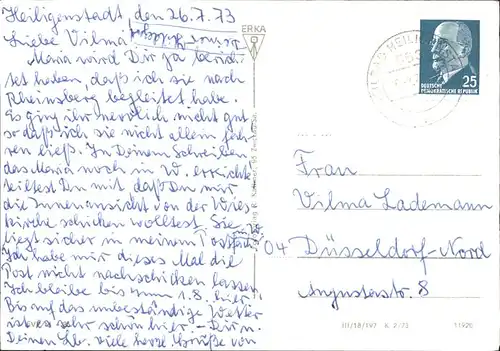 Heiligenstadt den 26.7.73
Liebe Vilma!
Maria wird Dir ja berich-
tet haben, daß ich sie nach
Rheinsberg begleitet habe.
Es ging ihr herzlich nicht gut
so daß ich sie nicht allein fah-
ren ließ. In Deinem Schreiben
das Maria noch in W. erreichte
teiltest Du mit daß Du mir
die Innenansicht von der Wies-
kirche schicken wolltest. Sie
liegt sicher in meinem Postfach
Ich habe mir dieses Mal die
Post nicht nachschicken lassen.
Ich bleibe bis zum 1.8. hier.
Bis auf das unbeständige Wetter
ist es sehr schön hier. - Dir u.
Deinen Lb. viele herzl. Grüße von
ERKA
DEUTSCHE
DEMOKRATISCHE REPUBLIK
25
Frau
Vilma Lademann
04 Düsseldorf-Nord
Augustastr. 8
III/18/197 K 2/73 11920